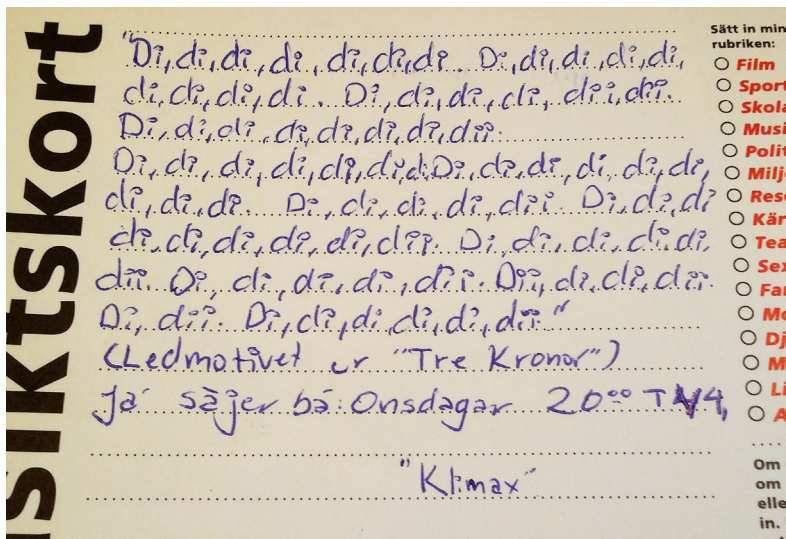 siktskort
"Di, di, di, di, di, di, di. Di, di, di, di, di,
di, di, di, di. Di, di, di, di, dii, dii.
Di, di, di, di, di, di, di, dii.
Di, di, di, di, di, di, di. Di, di, di, di, di, di,
di, di, di. Di, di, di, di, dii. Di, di, di
di, di, di, di, di, dii. Di, di, di, di, di,
dii. Di, di, di, di, dii. Dii, di, di, dii.
Di, dii. Di, di, di, di, di, dii."
(Ledmotivet ur "Tre Kronor")
Ja säjer bá: Onsdagar 20⁰⁰ TV4,
"Klimax"
Sätt in min
rubriken:
Film
Sport
Skola
Musi
Polit
Milj
Res
Kär
Tea
Sex
Fa
Mo
Dj
M
Li
A
Om
om
elle
in.